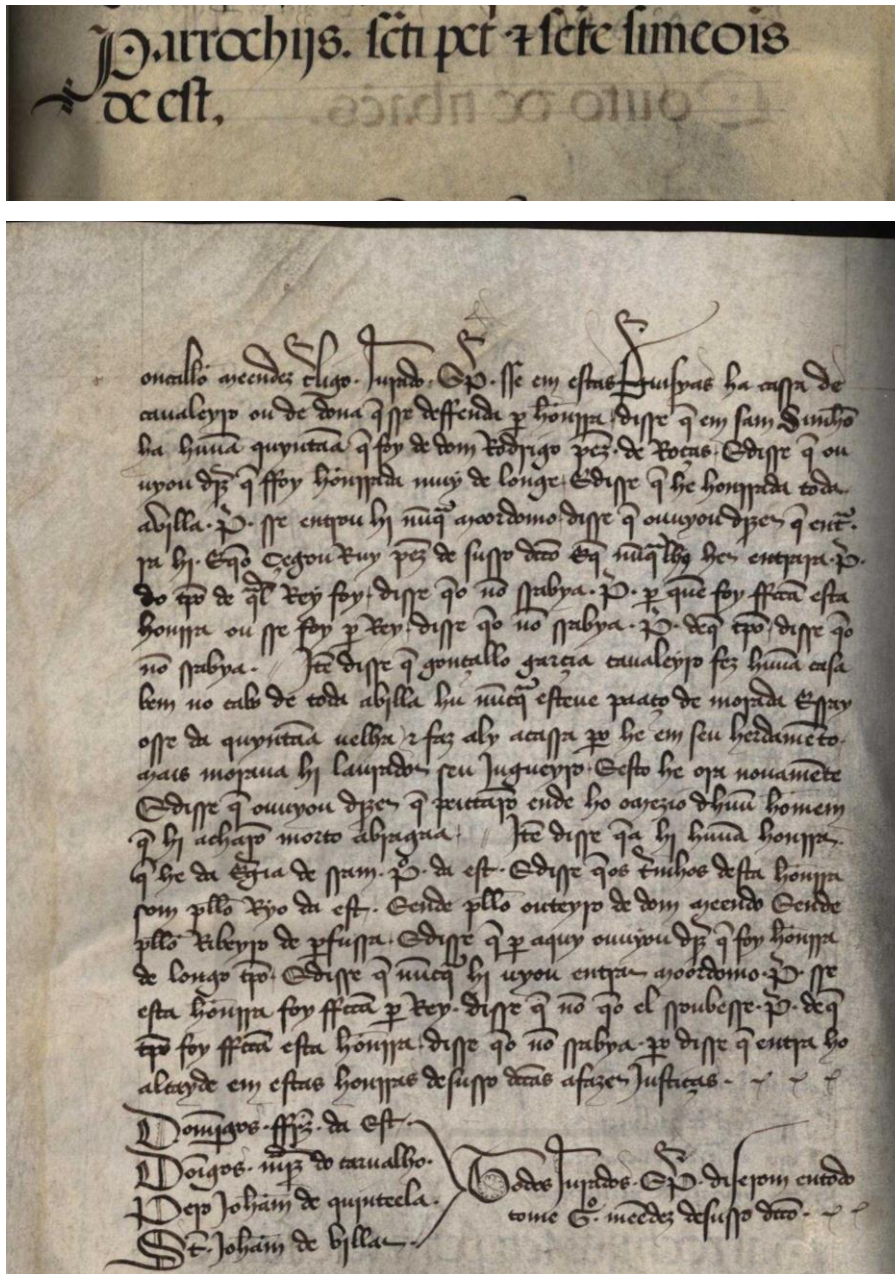 Parrochijs. scti pet ⁊ scte simeois
de est,
oncallo meendez cligo. Jurado. ⁊ P. sse em estas ffrijsyas ha cassa de
caualeyro ou de dona q̃ sse deffenda p honrra, disse q̃ em sam
ha huũa quyntaã q̃ foy de dom Rodrigo pez de Roças, Edisse q̃ ou
uyou dizr q̃ ffoy honrrada muy de longe, Edisse q̃ he honrrada toda
abilla. P. sse entrou hi nũqᵃ moordomo, disse q̃ ouuyou dizer q̃ entᵃ
ra hi. Eq̃o çegou Ruy pez de susso dcto Eq̃ nũqᵃ hi entrara. P.
do tpõ de q̃l Rey foy, disse q̃o nõ ssabya. P. p quem foy ffcta esta
honrra ou sse foy p Rey, disse q̃o nõ ssabya. P. deq̃ tpõ, disse q̃o
nõ ssabya. Itẽ disse q̃ gonçallo garçia caualeyro fez huũa casa
bem no cabo de toda abilla hu nũcqᵃ esteue paaço de morada Essay
osse da quyntaã uelha, ⁊ faz aly acassa po he em seu herdamẽto.
mais moraua hi laurador seu Jugueyro. Eesto he ora nouamẽte
Edisse q̃ ouuyou dizer q̃ peitarõ ende ho omezio dhuũ homem
q̃ hi acharõ morto abragaa. Itẽ disse q̃a hi huũa honrra
q̃ he da Egia de ssam. P. da est. Edisse q̃os tminhos desta honrra
som pllo Ryo da est. Eende pllo outeyro de dom meendo Eende
pllo Ribeyro de pfussa. Edisse q̃ p aquy ouuyou dizr q̃ foy honrra
de longo tpõ. Edisse q̃ nũcqᵃ hi uyou entrar moordomo. P. sse
esta honrra foy ffcta p Rey. disse q̃ nõ q̃o el ssoubesse. P. deq̃
tpõ foy ffcta esta honrra, disse q̃o nõ ssabya. po disse q̃ entra ho
alcayde em estas honrras desusso dctas afazer Justiças.
Domĩgos. ffrz. da Est.
Doĩgos. mjz do carualho.
Pero Joham de quinteela.
St. Joham de Villar.
Todos Jurados. ⁊ P. diserom entodo
come Gᵒ. meẽdez desusso dcto.